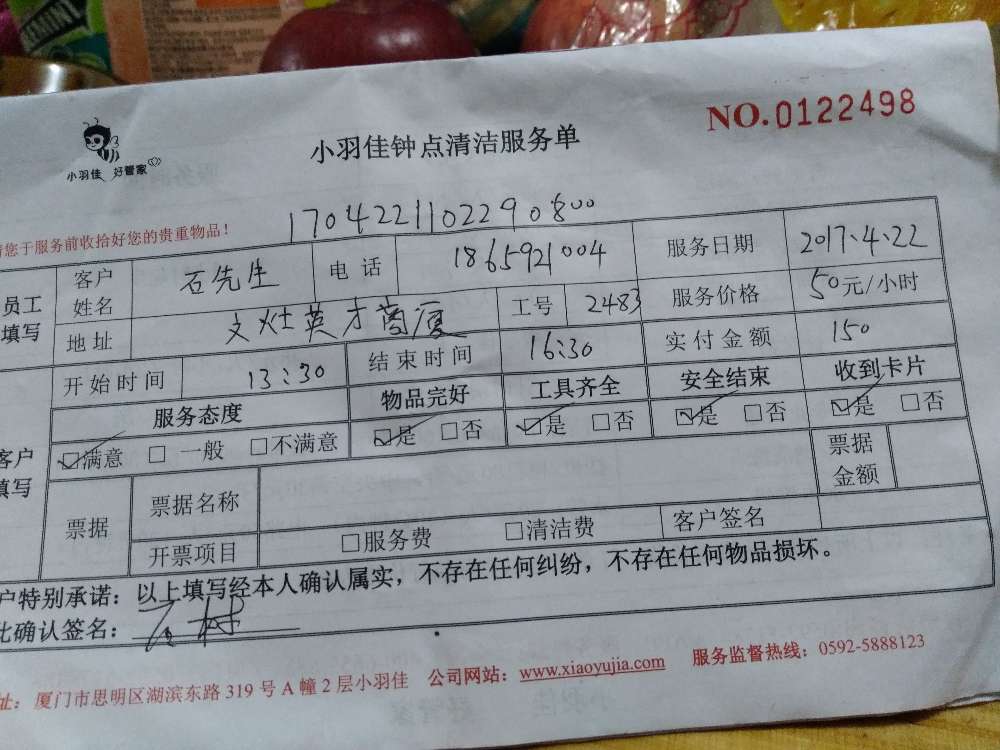 NO.0122498
小羽佳 好管家
小羽佳钟点清洁服务单
1704221102290800
请您于服务前收拾好您的贵重物品!
员工填写
客户姓名 石先生 电话 1865921004 服务日期 2017.4.22
地址 文灶英才商厦 工号 2483 服务价格 50元/小时
开始时间 13:30 结束时间 16:30 实付金额 150
客户填写
服务态度 物品完好 工具齐全 安全结束 收到卡片
☑满意 □一般 □不满意 ☑是 □否 ☑是 □否 ☑是 □否 ☑是 □否
票据 票据名称 票据金额
开票项目 □服务费 □清洁费 客户签名
户特别承诺:以上填写经本人确认属实,不存在任何纠纷,不存在任何物品损坏。
此确认签名:
址:厦门市思明区湖滨东路 319 号 A 幢 2 层小羽佳 公司网站:www.xiaoyujia.com 服务监督热线:0592-5888123